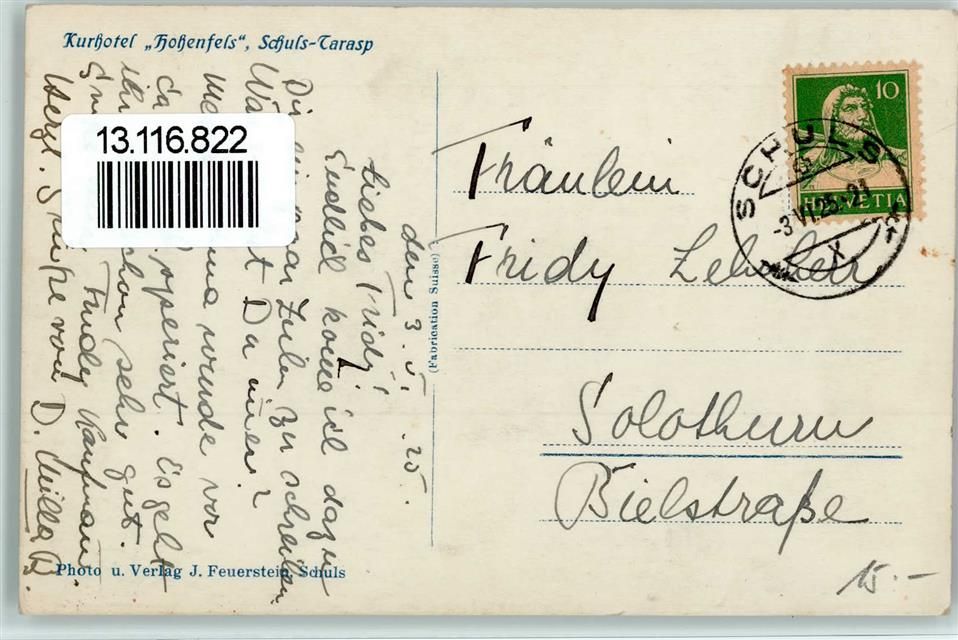 Kurhotel „Hohenfels", Schuls-Tarasp
13.116.822
den 3. VI. 25.
Liebes Fridy!
Endlich kome ich dazu
Dir ein paar Zeilen zu schreiben.
Wa t Du imer?
Me ma wurde vor
ca operiert. Es geht
ihr schon sehr gut.
Trudy Kaufmann.
Herzl. Grüsse von D. Milla
(Fabrication Suisse)
Photo u. Verlag J. Feuerstein, Schuls
10
HELVETIA
SCHULS
-3.VI.25.-21
Fräulein
Fridy
Solothurn
Bielstraße
15.-